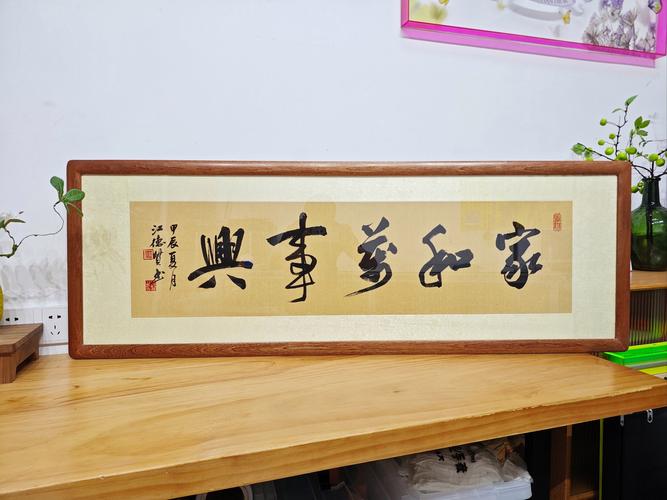 家和萬事興
甲辰夏月
江德賢書